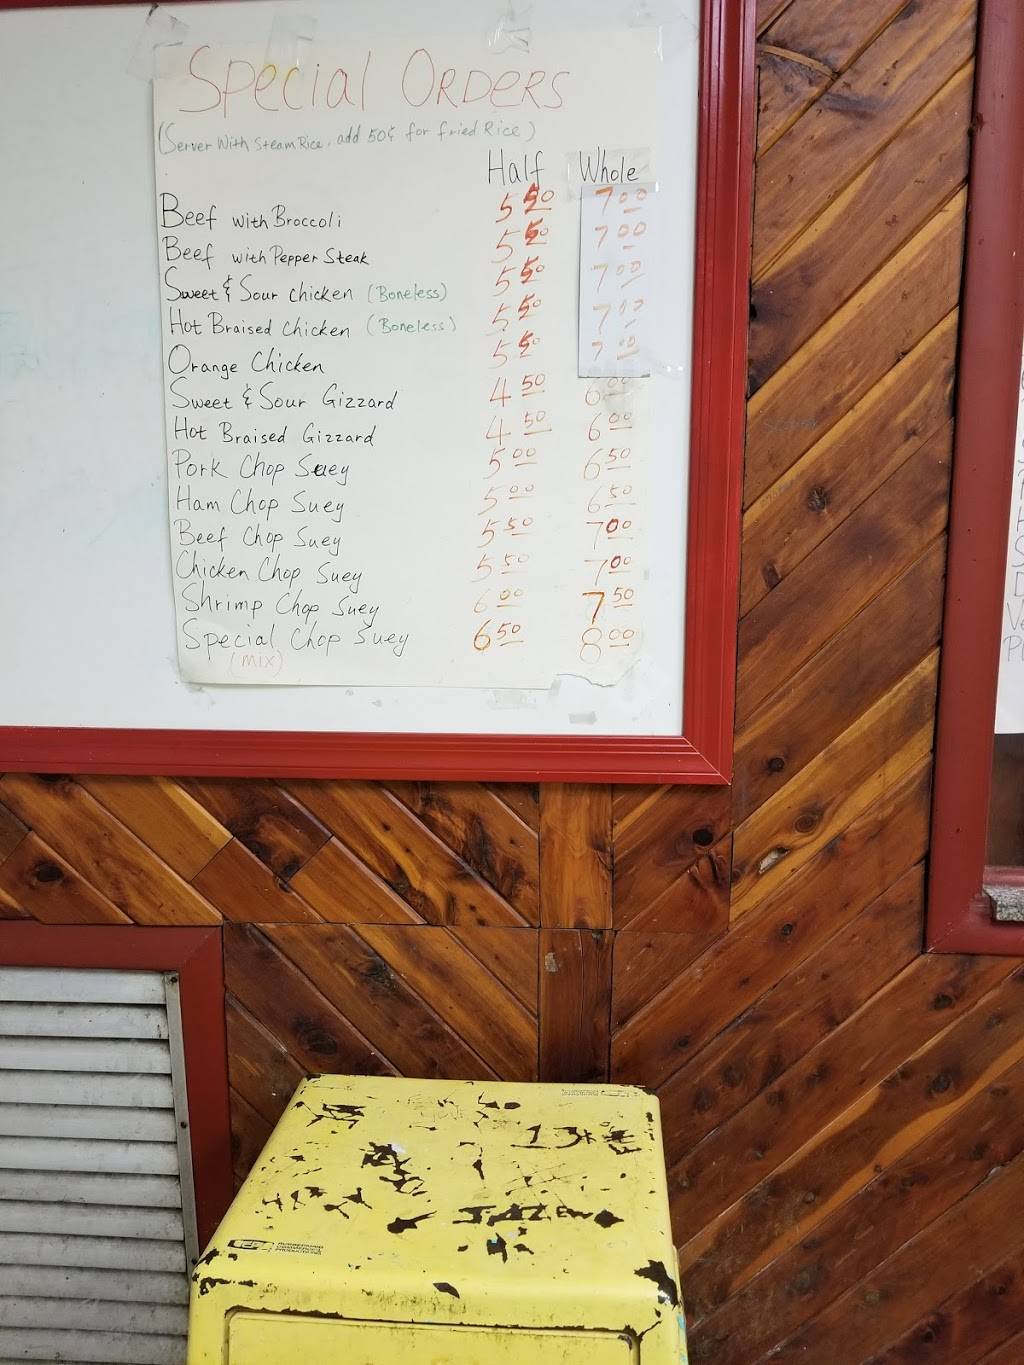 Special ORDERS
(Server With Steam Rice, add 50¢ for fried Rice)
Half Whole
Beef with Broccoli 5 50 7 00
Beef with Pepper Steak 5 50 7 00
Sweet & Sour chicken (Boneless) 5 50 7 00
Hot Braised chicken (Boneless) 5 50 7 00
Orange Chicken 5 50 7 00
Sweet & Sour Gizzard 4 50 6 00
Hot Braised Gizzard 4 50 6 00
Pork Chop Suey 5 00 6 50
Ham Chop Suey 5 00 6 50
Beef Chop Suey 5 50 7 00
Chicken Chop Suey 5 50 7 00
Shrimp Chop Suey 6 00 7 50
Special Chop Suey 6 50 8 00
(mix)